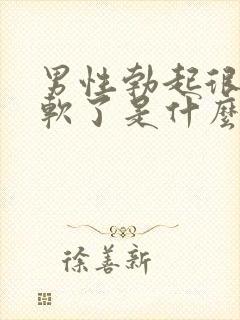 男性勃起很
軟了是什麼
徐善新